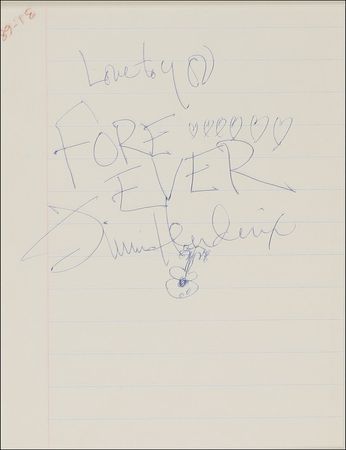 3-1-68
Love to you
FORE
EVER
Jimi Hendrix